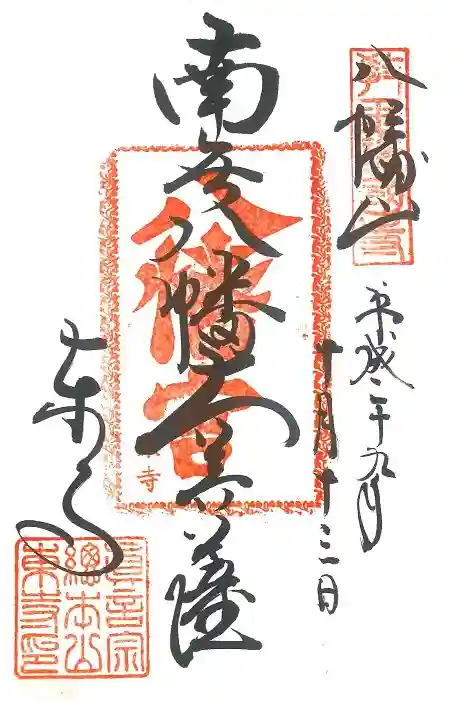 八幡山
平成二十九年
十月十三日
南無八幡大菩薩
八幡宮
寺
東寺
真言宗
總本山
東寺印